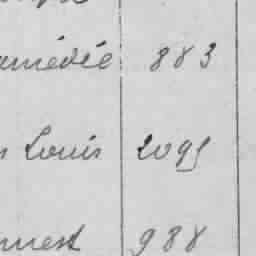 amédée 883
s Louis 2095
rnest 988